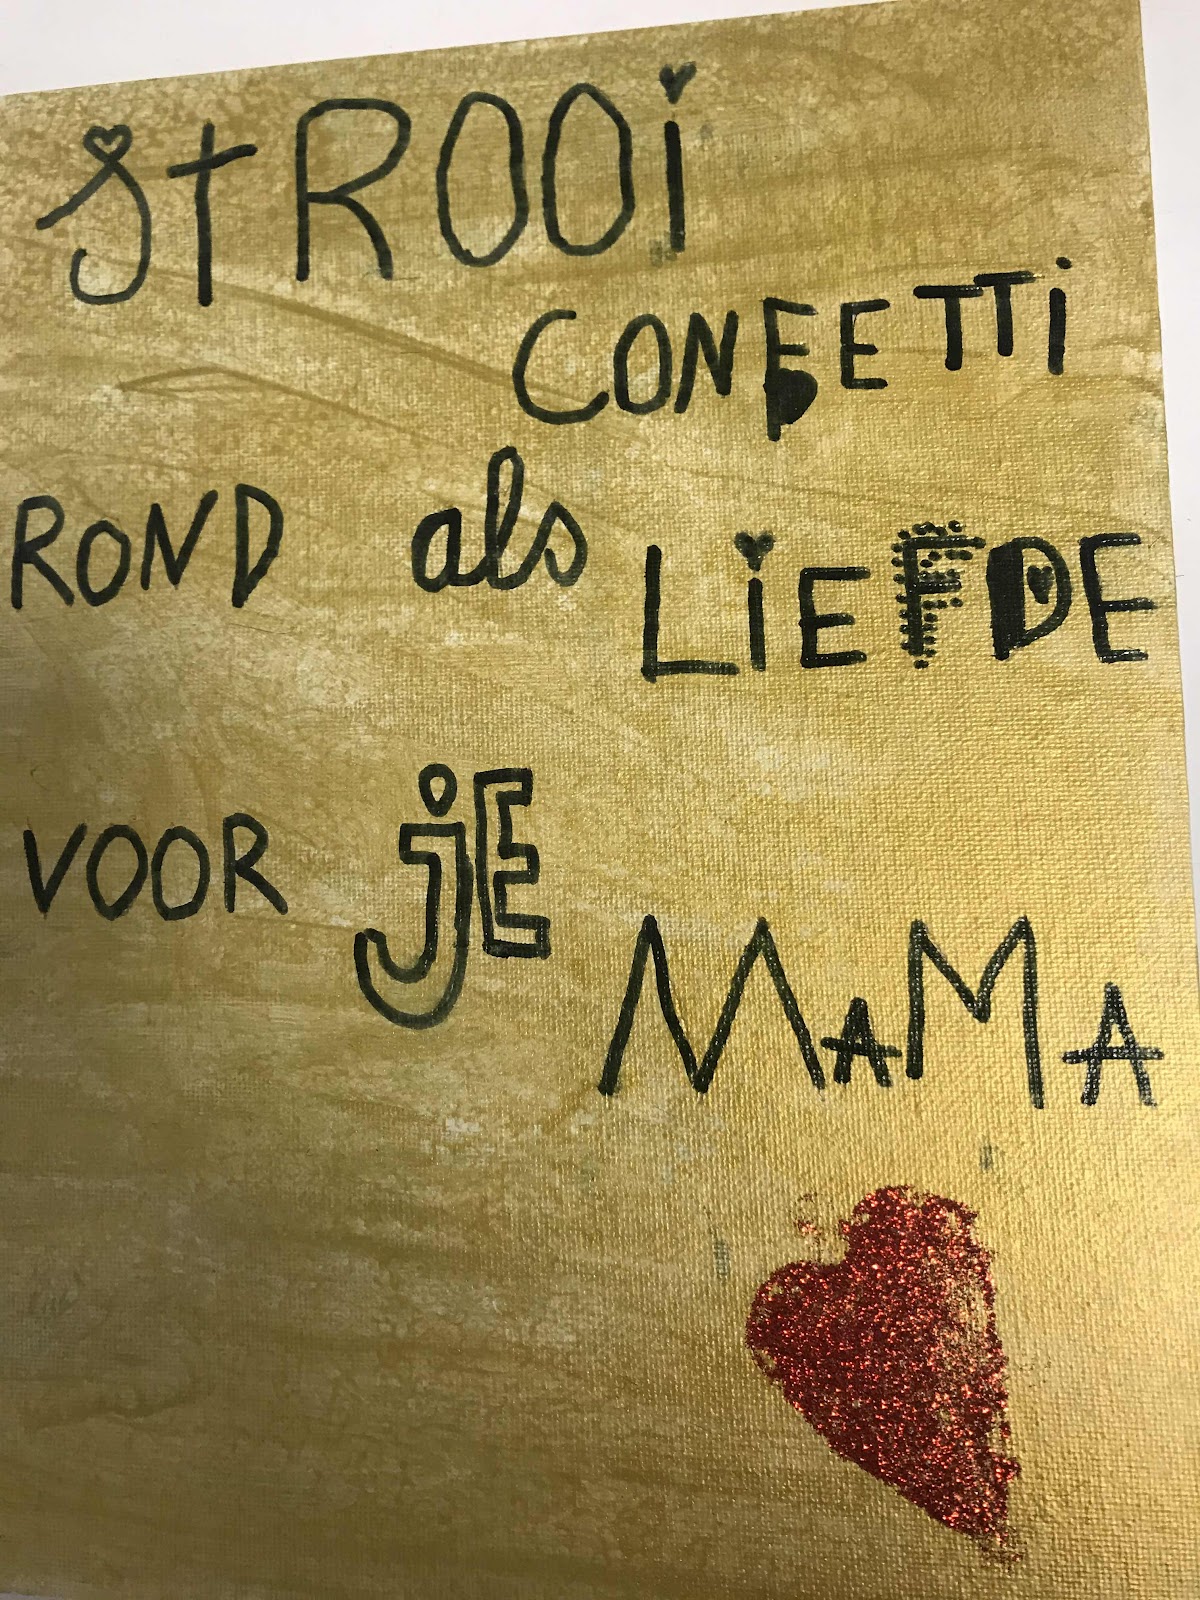 stROOi
CONFETTi
ROND als LiEFDE
VOOR jE
MaMA